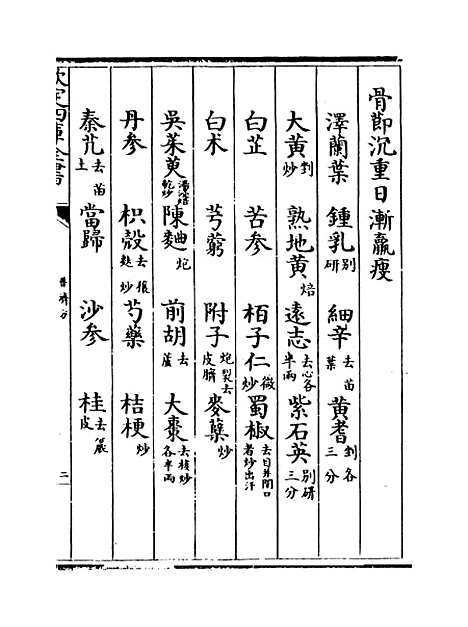 骨節沉重日漸羸瘦
澤蘭葉 鍾乳別研 細辛去苗葉 黃耆剉各三分
大黃剉炒 熟地黃焙 遠志去心各半兩 紫石英別研三分
白芷 苦參 栢子仁微炒 蜀椒去目并閉口者炒出汗
白术 芎藭 附子炮裂去皮臍 麥蘖炒
吳茱萸湯浸焙乾炒 陳麯炮 前胡去蘆 大棗去核炒各半兩
丹參 枳殼去穰麩炒 芍藥 桔梗炒
秦艽去苗土 當歸 沙參 桂去麤皮
欽定四庫全書
普濟方
二